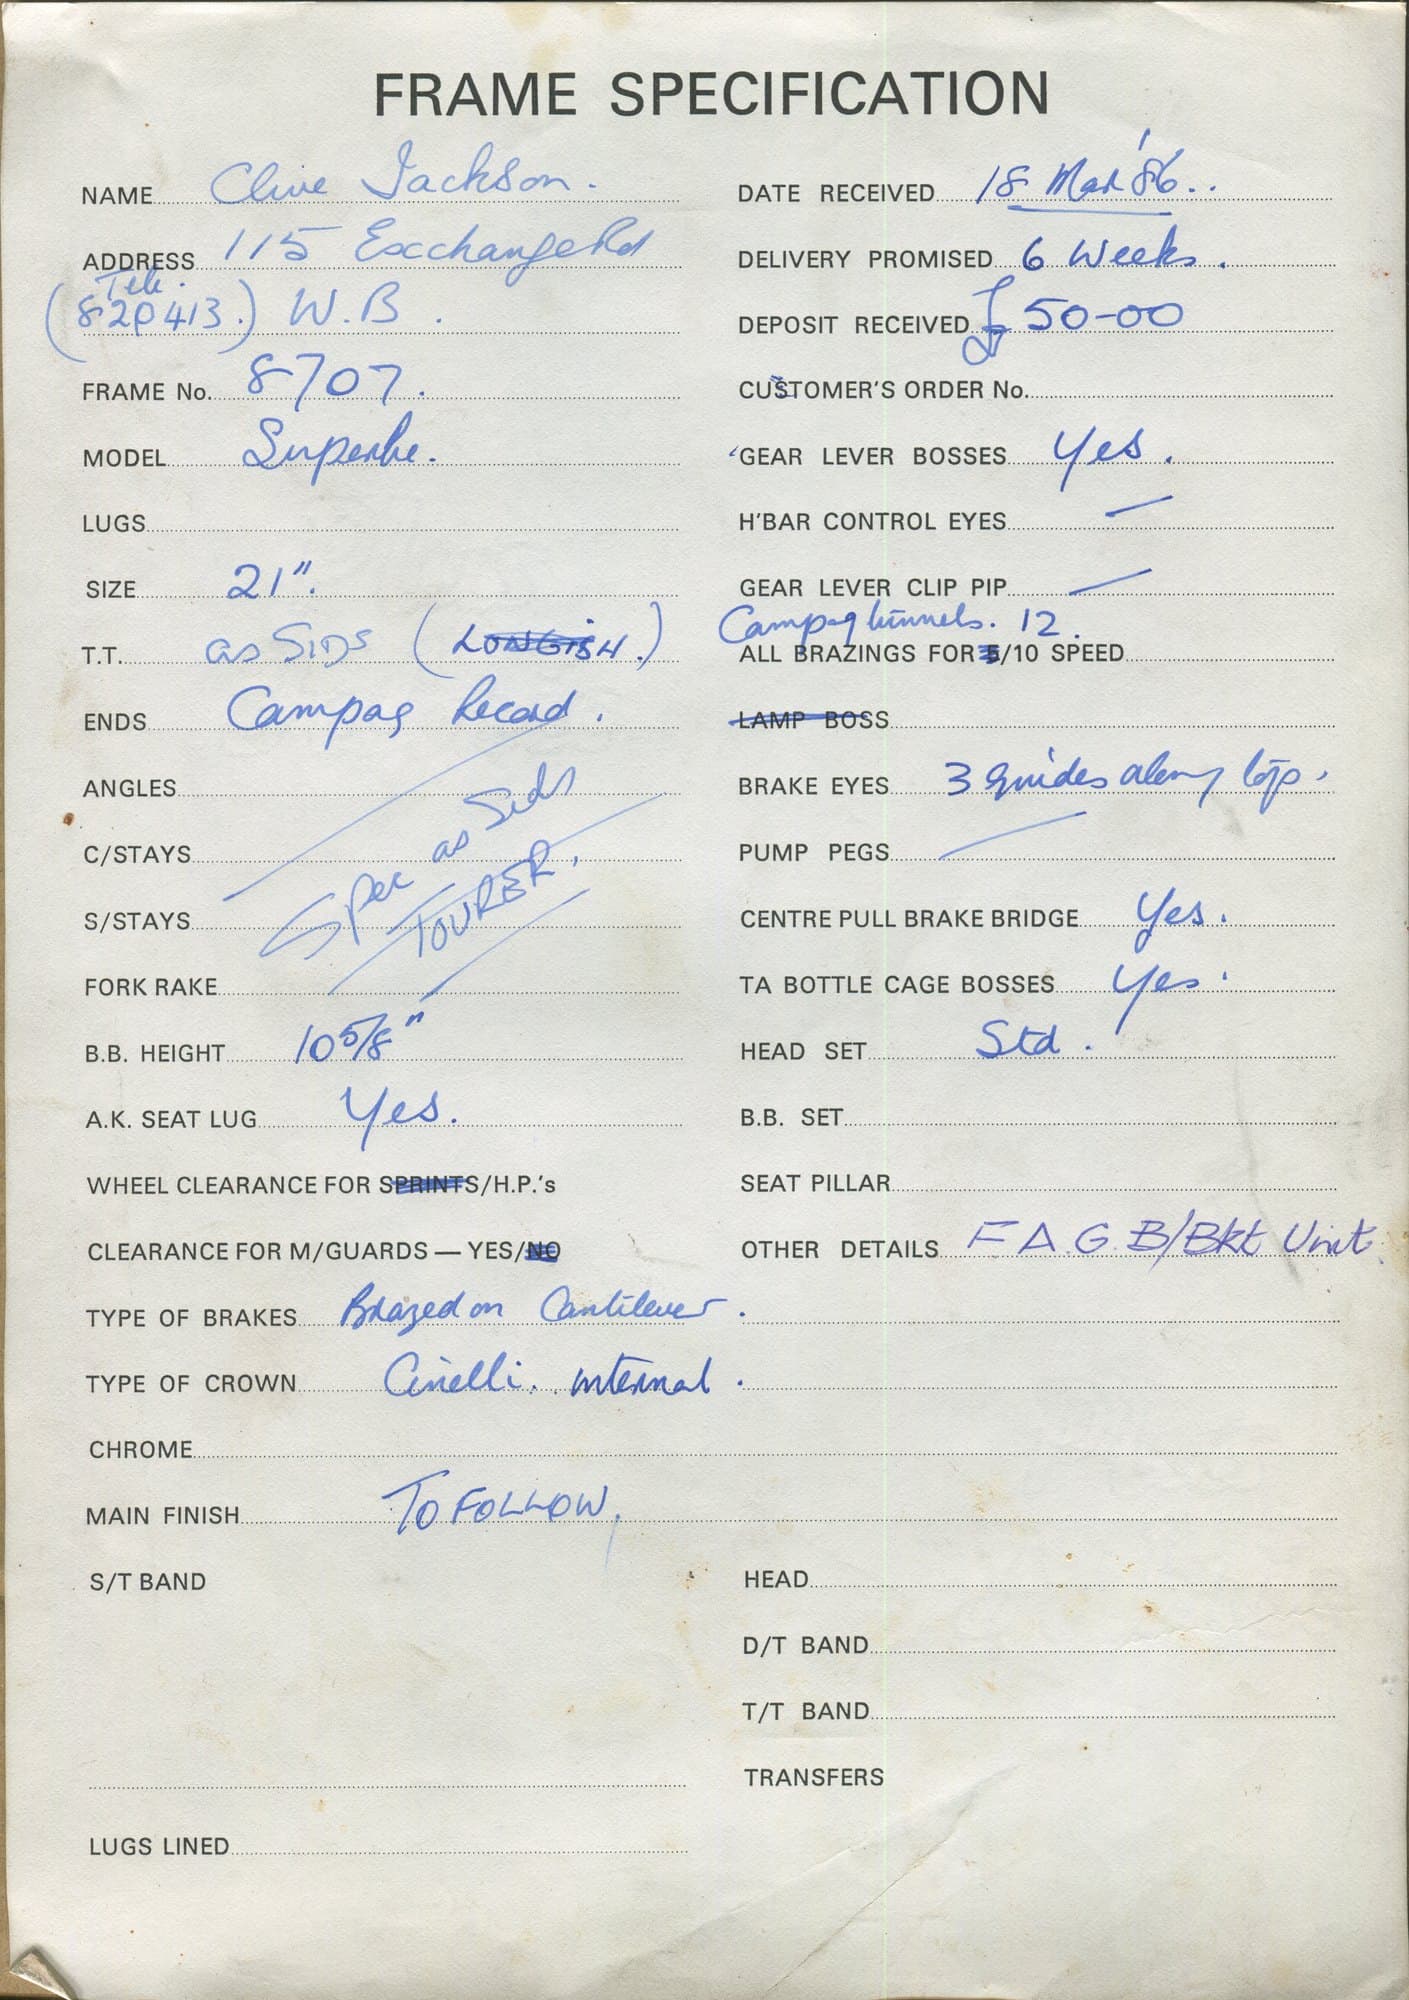 FRAME SPECIFICATION
NAME Clive Jackson.
ADDRESS 115 Exchange Rd
Tele.
(820413.) W.B.
FRAME No. 8707.
MODEL Superbe.
LUGS
SIZE 21".
T.T. as SIDS (LONGISH.)
ENDS Campag Record.
ANGLES
C/STAYS
S/STAYS
Spec as Sids
TOURER.
FORK RAKE
B.B. HEIGHT 10 5/8"
A.K. SEAT LUG Yes.
WHEEL CLEARANCE FOR SPRINTS/H.P.'s
CLEARANCE FOR M/GUARDS — YES/NO
TYPE OF BRAKES Brazed on Cantilever.
TYPE OF CROWN Cinelli. internal.
CHROME
MAIN FINISH TO FOLLOW,
S/T BAND
LUGS LINED
DATE RECEIVED 18 Mar '86..
DELIVERY PROMISED 6 Weeks.
DEPOSIT RECEIVED £50-00
CUSTOMER'S ORDER No.
GEAR LEVER BOSSES Yes.
H'BAR CONTROL EYES —
GEAR LEVER CLIP PIP —
Campag tunnels. 12.
ALL BRAZINGS FOR 5/10 SPEED
LAMP BOSS
BRAKE EYES 3 guides along top.
PUMP PEGS —
CENTRE PULL BRAKE BRIDGE Yes.
TA BOTTLE CAGE BOSSES Yes.
HEAD SET Std.
B.B. SET
SEAT PILLAR
OTHER DETAILS F.A.G. B/Bkt Unit.
HEAD
D/T BAND
T/T BAND
TRANSFERS